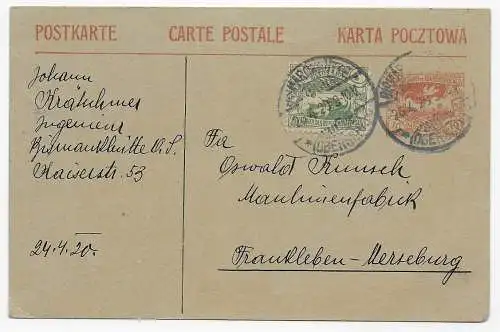 POSTKARTE CARTE POSTALE KARTA POCZTOWA
Johann
Ingenieur
Bismarkhütte O.S.
Kaiserstr. 53
24.4.20.
Fa
Oswald Kunsch
Maschinenfabrik
Frankleben-Merseburg